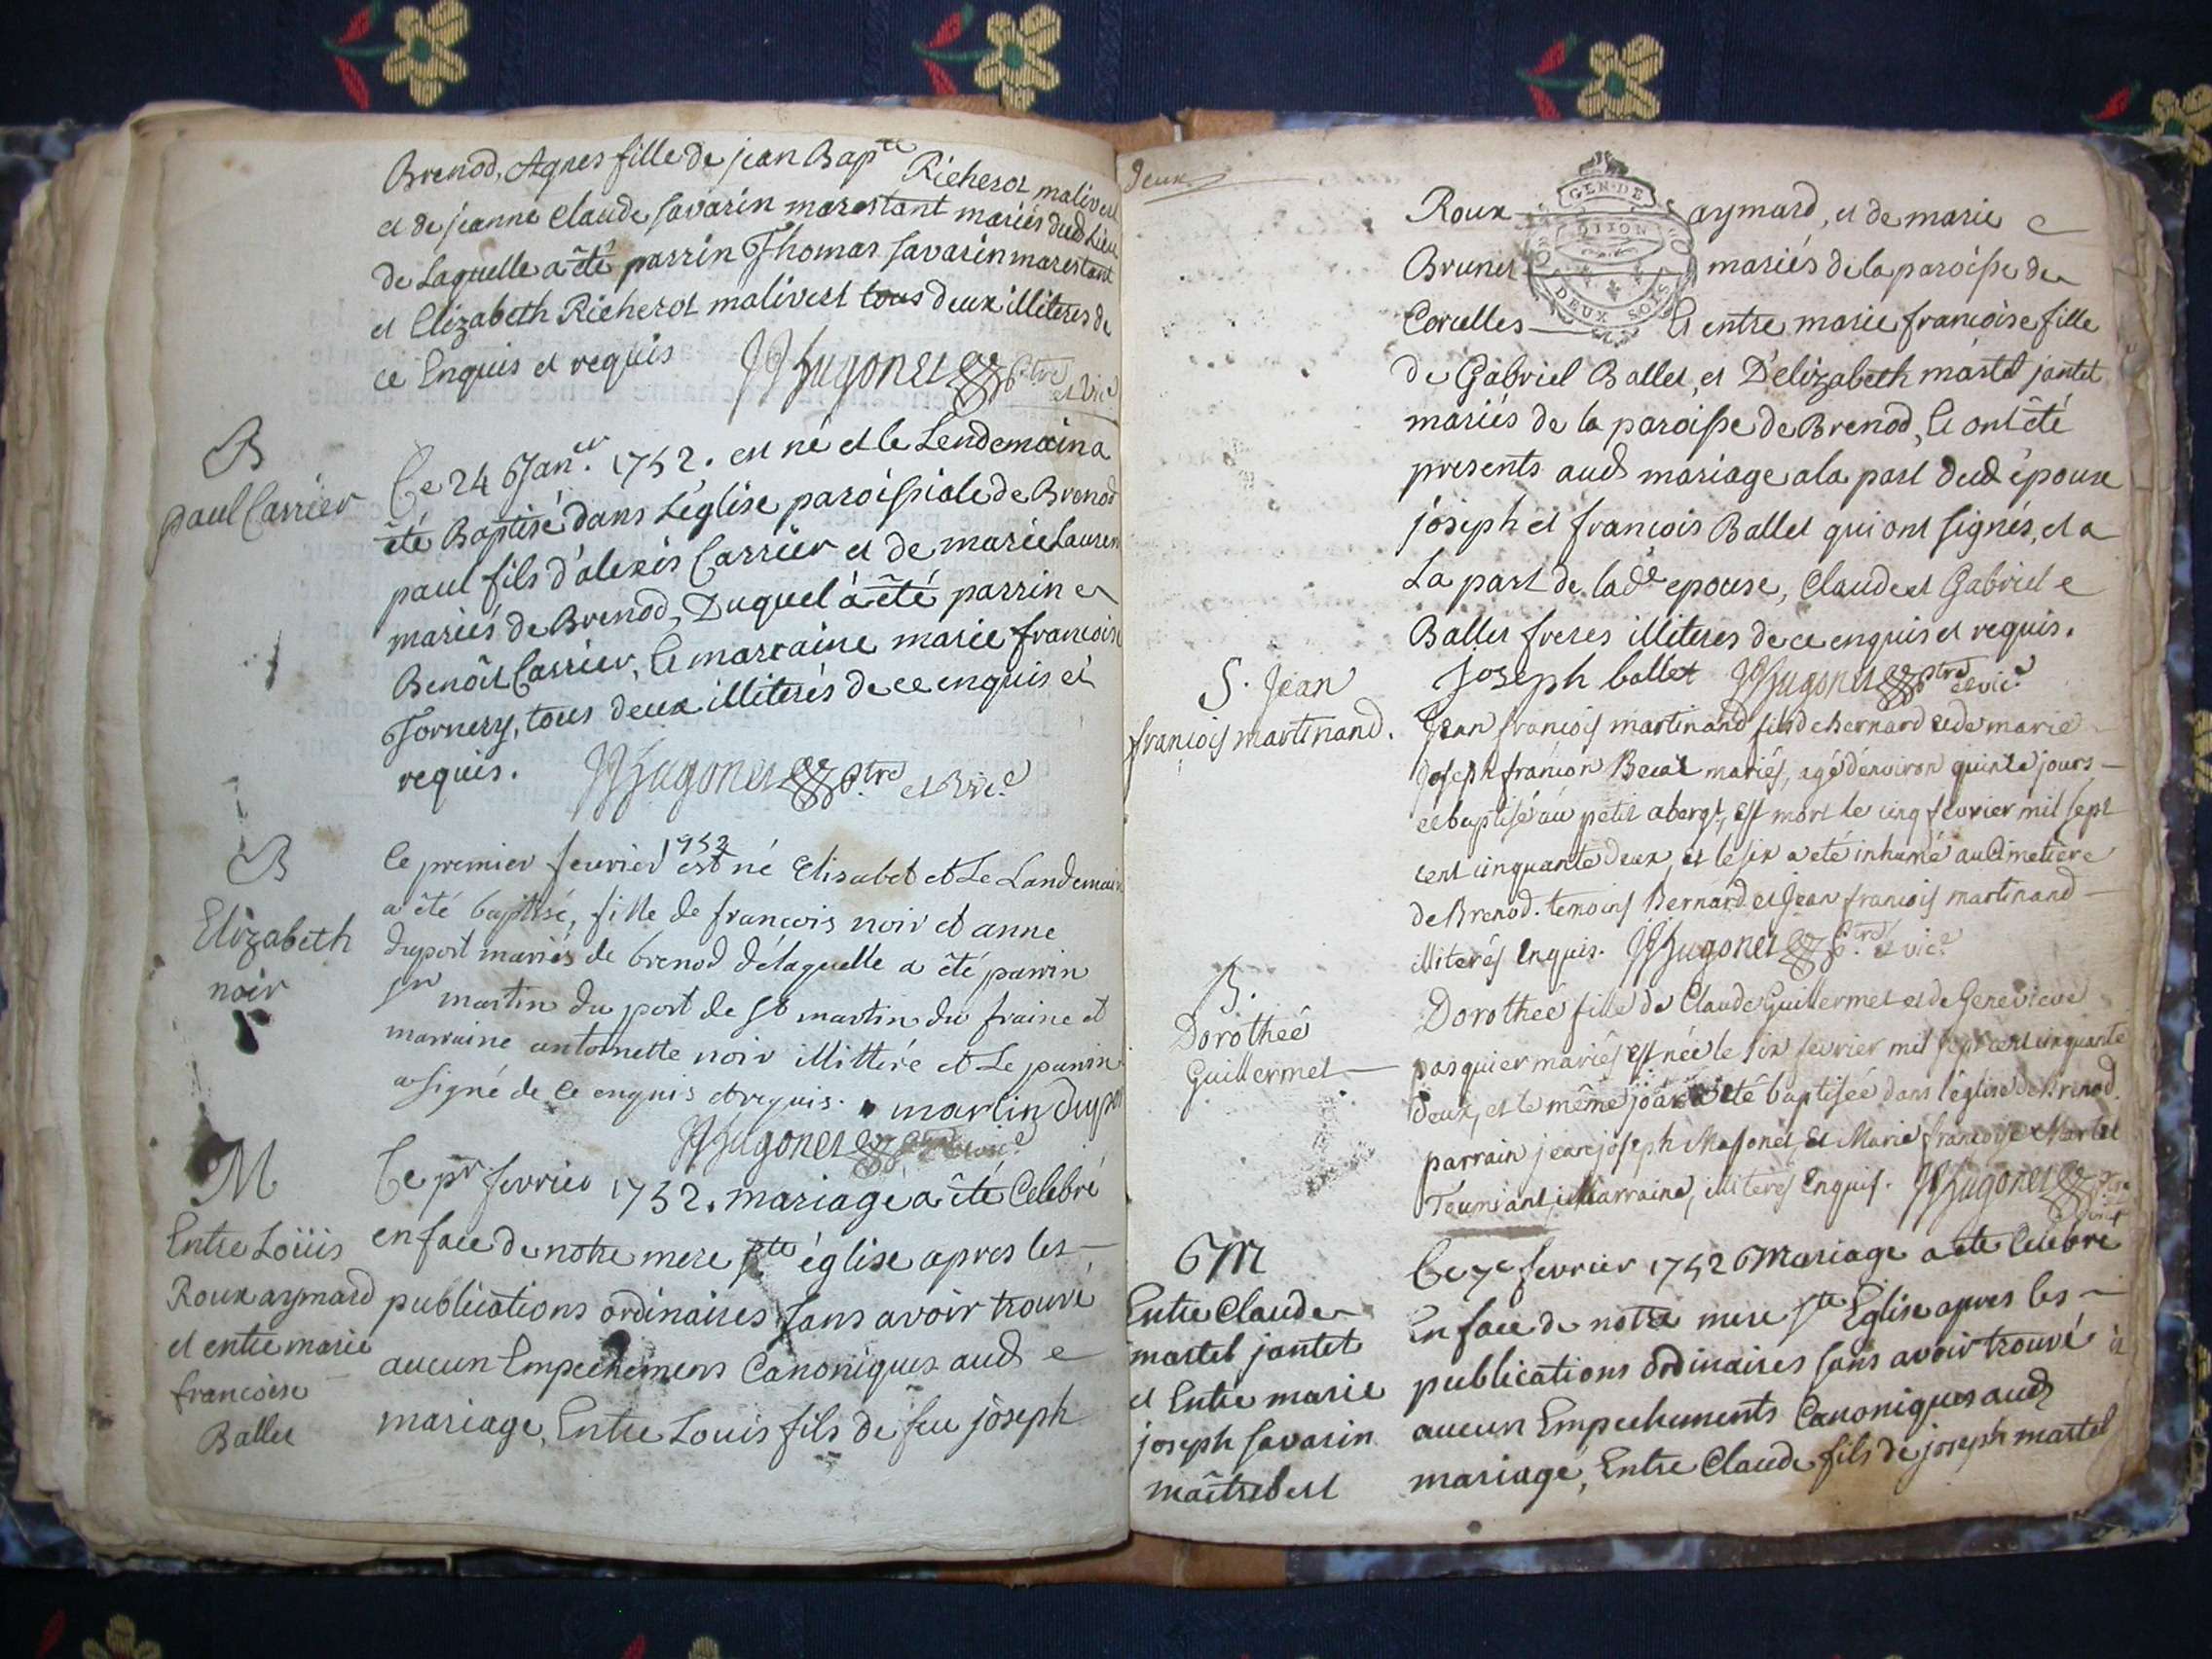 Brenod, Agnes fille de jean Bap.te Richerot malivert
et de jeanne Claude savarin marestant mariés dud Lieu
de Laquelle a êté parrin Thomas savarin marestant
et Elizabeth Richerot malivert tous deux illiteres de
ce Enquis et requis JJHugonet ptre et vic.e
B
paul Carrier
Ce 24 Jan.er 1752. est né et le Lendemain a
êté Baptisé dans L'église paroissiale de Brenod
paul fils d'alexis Carrier et de marie Laurent
mariés de Brenod, Duquel a êté parrin
Benoît Carrier, Et marraine marie francoise
Tornery, tous deux illiterés de ce enquis et
requis. JJHugonet ptre et vic.e
B
Elizabeth
noir
le premier feuvrier 1752 est né Elisabet et Le Landemain
a êté baptisé, fille de françois noir et anne
duport mariés de brenod délaquelle a êté parrin
sr martin du port de st martin du fraine et
marraine antoinette noir illittéré et Le parrin
a signé de ce enquis et requis. martin duport
JJHugonet ptre et vic.e
M
Entre Loüis
Roux aymard
et entre marie
francoise
Ballet
Ce pr fevrier 1752. mariage a êté Celebré
en face de notre mere ste église apres les
publications ordinaires sans avoir trouvé
aucun Empechemens Canoniques aud
mariage, Entre Louis fils de feu joseph
Deux
GEN. DE
DIJON
DEUX SOLS
Roux aymard, et de marie
Brunet mariés de la paroisse de
Corcelles Et entre marie francoise fille
de Gabriel Ballet, et D'elizabeth martel jantet
mariés de la paroisse de Brenod, Et ont êté
presents aud mariage a la part dud époux
joseph et francois Ballet qui ont signés, et a
La part de lad.e epouse, Claude et Gabriel
Ballet freres illiteres de ce enquis et requis.
joseph ballet JJHugonet ptre et vic.e
S. Jean
francois martinand.
Jean francois martinand fils de Bernard et de marie
joseph françon Becat mariés, agé d'environ quinze jours
et baptisé au petit abergt, est mort le cinq fevrier mil sept
cent cinquante deux, et le six a eté inhumé au Cimetiere
de Brenod. temoins Bernard et Jean francois martinand
illiterés Enquis. JJHugonet ptre et vic.e
B.
Dorotheé
Guillermet
Dorotheé fille de Claude Guillermet et de Genevieve
pasquier mariés est née le six fevrier mil sept cent cinquante
deux, et le même jour a été baptisée dans l'église de Brenod.
parrain jean joseph Massonet, Et Marie françoise Martel
Marraine, illiterés Enquis. JJHugonet ptre et vic.e
M
Entre Claude
martel jantet
et Entre marie
joseph savarin
maîtrebert
Ce 7e fevrier 1752 Mariage a eté Celebré
En face de notre mere ste Eglise apres les
publications ordinaires sans avoir trouvé
aucun Empechements Canoniques aud
mariage, Entre Claude fils de joseph martel